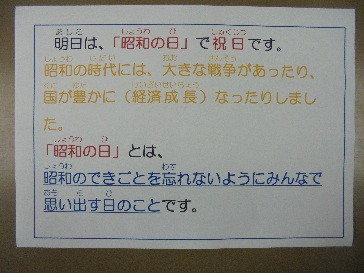 明日は、「昭和の日」で祝日です。
昭和の時代には、大きな戦争があったり、
国が豊かに（経済成長）なったりしまし
た。
「昭和の日」とは、
昭和のできごとを忘れないようにみんなで
思い出す日のことです。